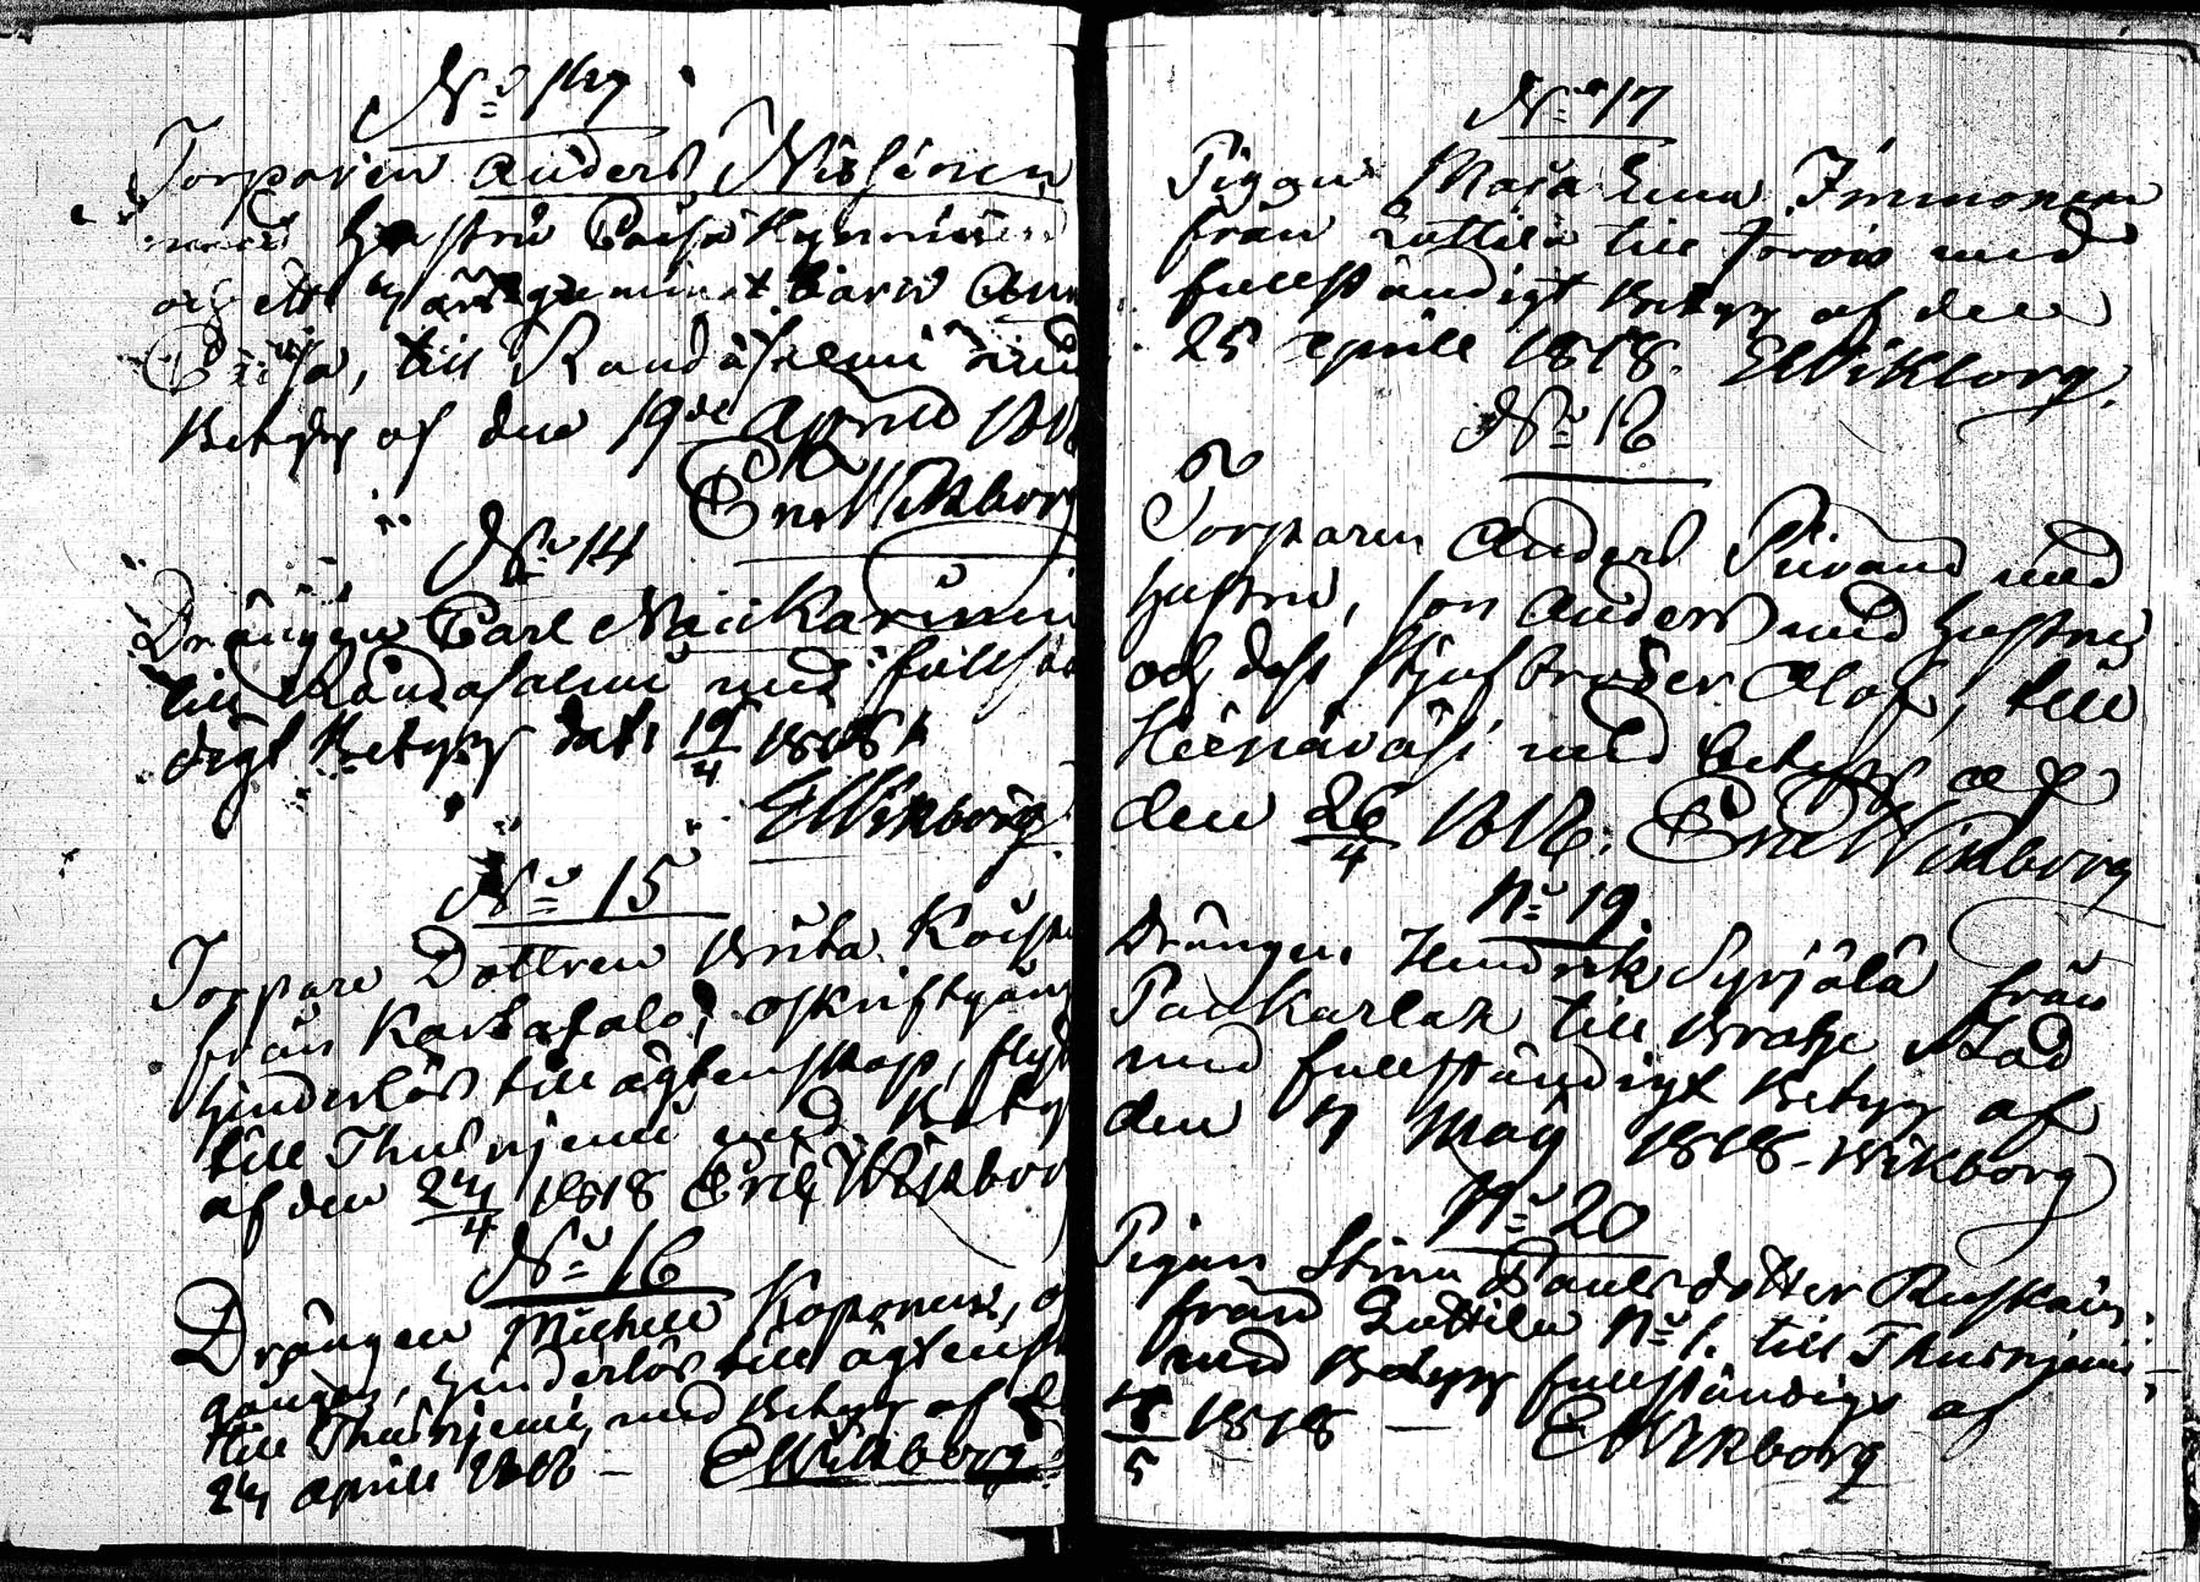 Torparen Anders Nissinen
med Hustru Caisa Kynninen
och ett
Caisa, till Randasalmi med
Betyg af den 19de Aprill 1818
Eric Wikborg
No 14
Drängen Carl Naukarinen
till Randasalmi med fullstän
digt Betyg dat: 19/4 1818
EWikborg
No 15
Torpare Dottren Brita
från Karsasalo, oskriftgång
hinderlös till ägtenskap, flyt
till Thusnjemi med Betyg
af den 24/4 1818 Eric Wikbor
No 16
Drängen Michell Koponen, o
gången, hinderlös till ägtensk
till Thusnjemi, med Betyg af d
24 Aprill 1818 – EWikborg
No 17
Pigan Maja Lena Immonen
från Luttila till Jorois med
fullständigt Betyg af den
25 Aprill 1818. EWikborg.
No 18
Torparen Anders med
Hustru, son Anders med Hustru
och dess Stjufbroder Olof, till
Heinäväsi med betyg af
den 26/4 1818: Eric Wikborg
No 19.
Drängen Hendrik Syrjälä från
Paukarlak till Brahe Stad
med fullständigt Betyg af
den 4 Maij 1818 – Wikborg
No 20
Pigan Stina Paulsdotter
från Luttila No 1. till Thusnjemi
med Betyg fullständigt af
/5 1818 — EWikborg